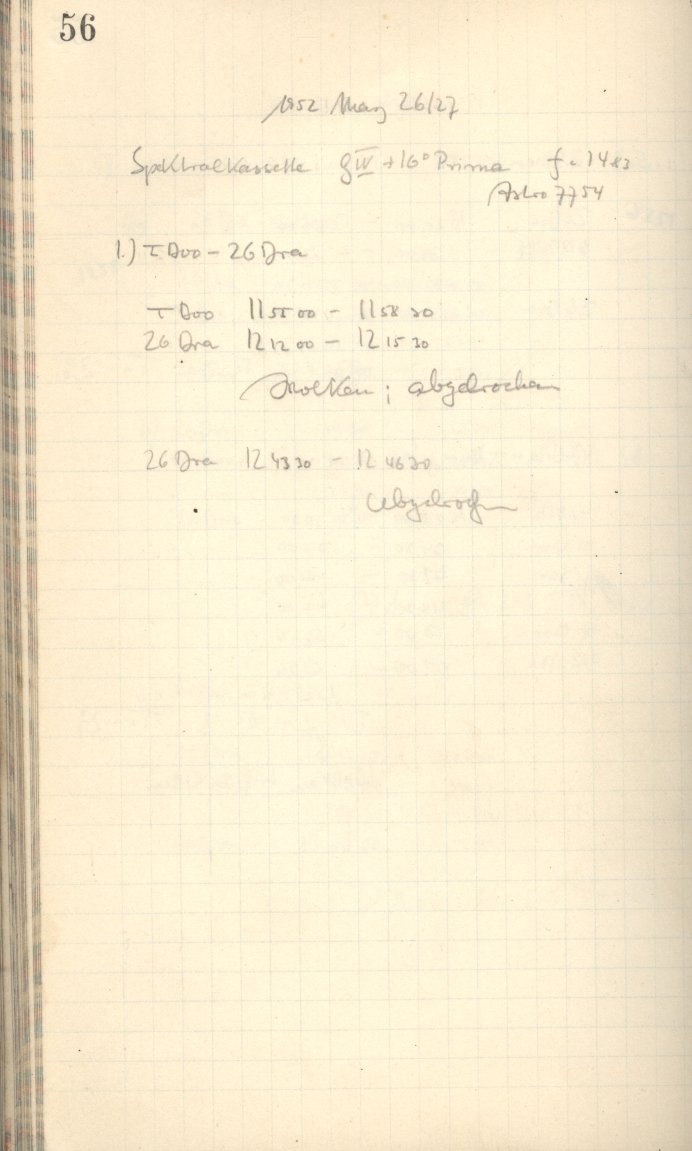 56
1952 März 26/27
Spektralkassette g IV + 16° Prisma f = 14.83
Astro 7754
1.) τ Boo – 26 Dra
τ Boo 11 55 00 – 11 58 30
26 Dra 12 12 00 – 12 15 30
Wolken ; abgebrochen
26 Dra 12 43 30 – 12 46 30
abgebrochen